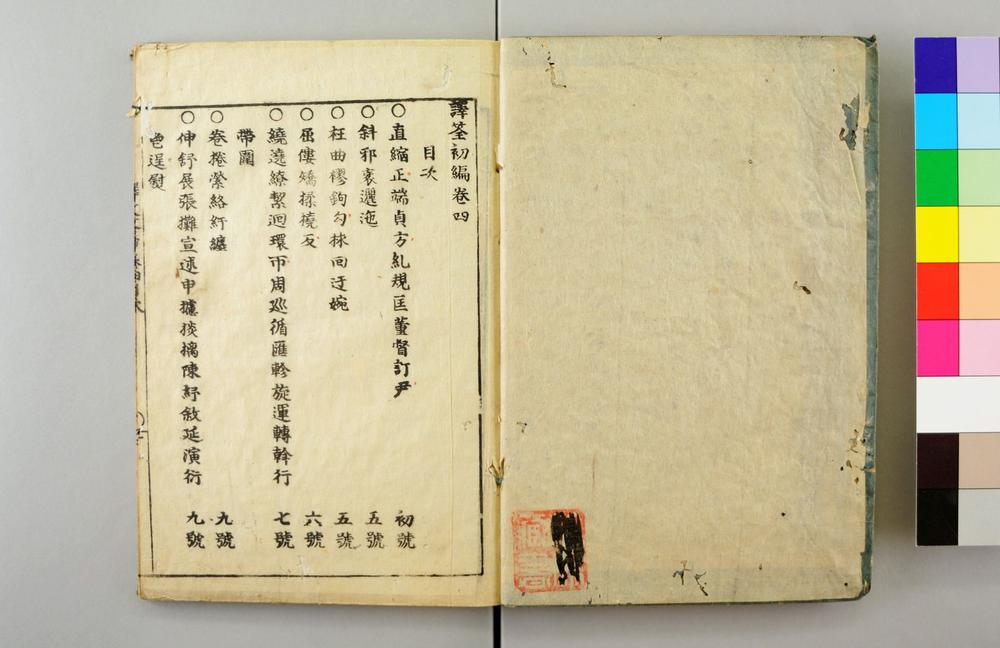 譯筌初編卷四
目次
○直縮正端貞方糺規匡董督訂尹 初號
○斜邪衺邐迤 五號
○枉曲樛鉤勾捄回迂婉 五號
○屈僂矯揉撓反 六號
○繞遶繚絜迴環帀周巡循匯軫旋運轉斡行 七號
帶圍
○卷捲縈絡紆纏 九號
○伸舒展張攤宣述申攄掞摛陳紓敘延演衍 九號
逞熨